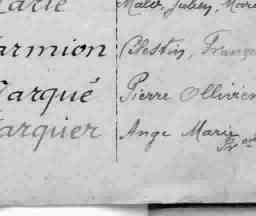 arie Malo, Julien, Marc
armion Célestin, Franço
arqué Pierre Ollivier
arquier Ange Marie